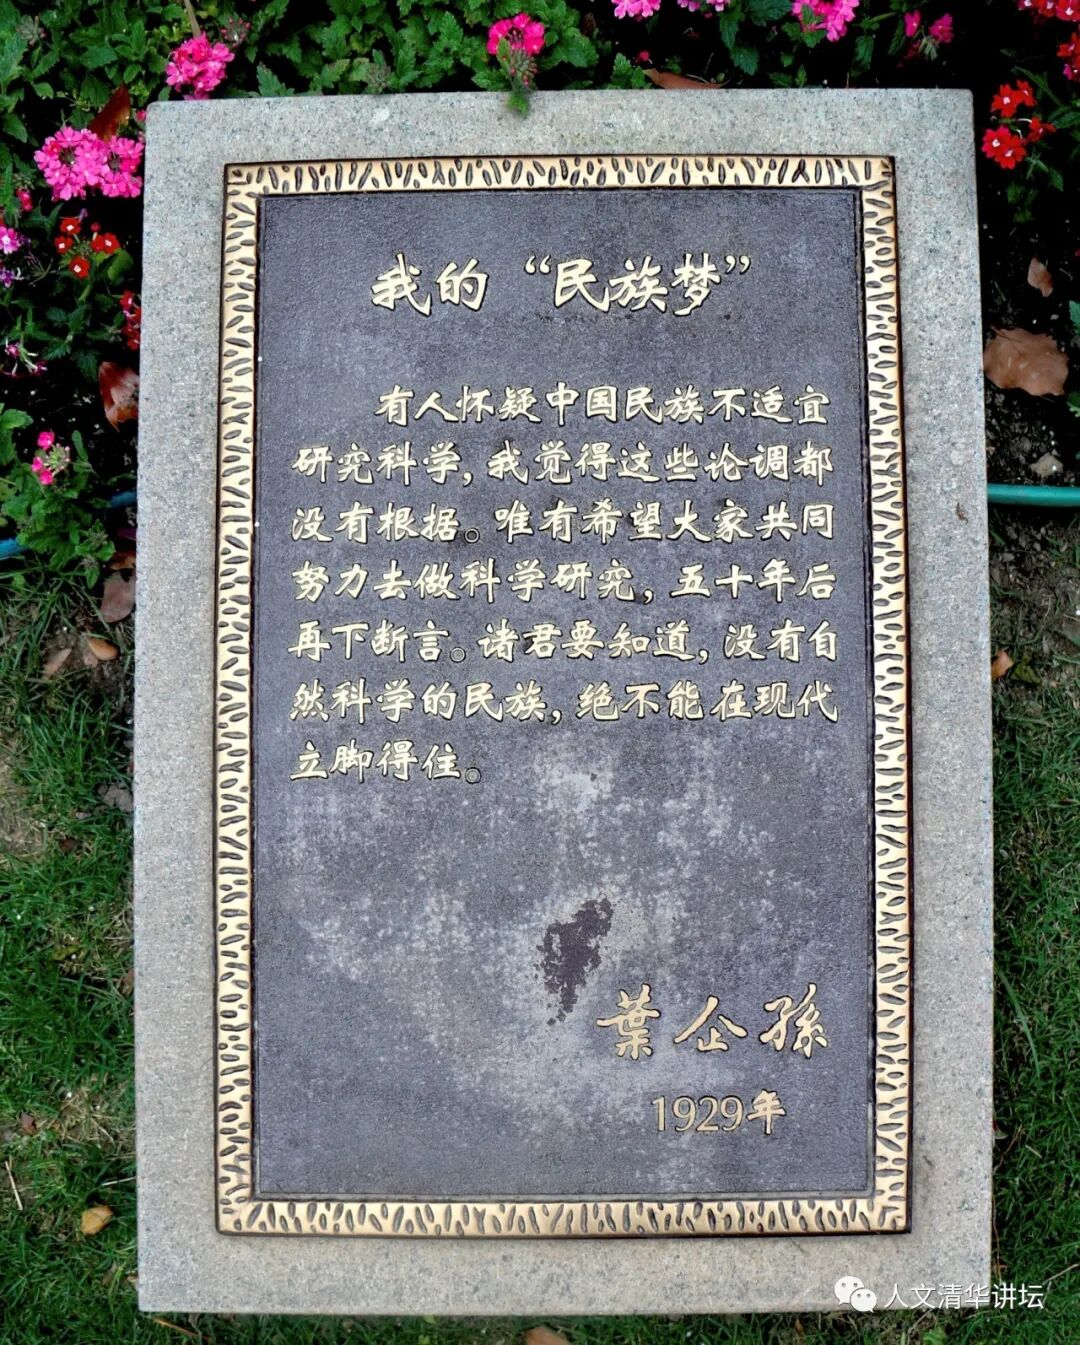 我的“民族梦”
有人怀疑中国民族不适宜
研究科学，我觉得这些论调都
没有根据。唯有希望大家共同
努力去做科学研究，五十年后
再下断言。诸君要知道，没有自
然科学的民族，绝不能在现代
立脚得住。
葉企孫
1929年
人文清华讲坛